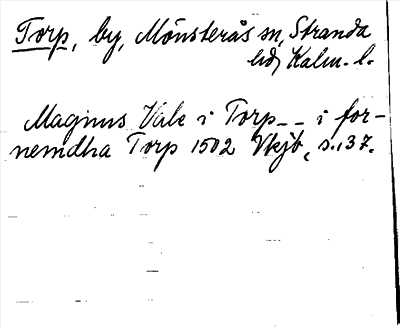 Torp, by, Mönsterås sn, Stranda
hd, Kalm. l.
Magnus Vale i Torp _ _ i for-
nemdha Torp 1502 Vkjb, s. 137.